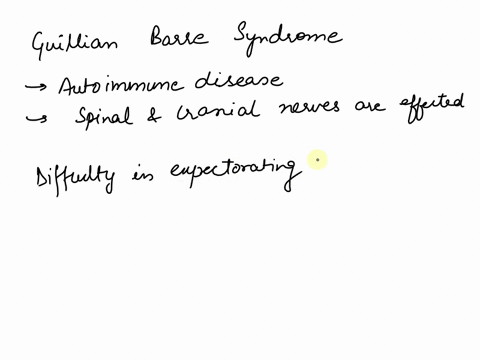 Guillian Barre Syndrome
→ Autoimmune disease
→ Spinal & Cranial nerves are effected
Diffculty in expectorating